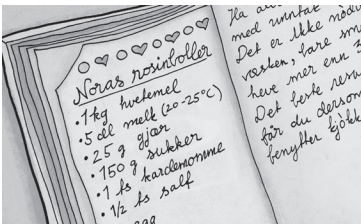 Noras rosinboller
• 1 kg hvetemel
• 5 dl melk (20-25°C)
• 25 g gjær
• 150 g sukker
• 1 ts kardemomme
• 1/2 ts salt
egg
Ha al
med unntak
Det er ikke nødv
væsken, bare sm
heve mer enn
Det beste resu
får du dersom
benytter kjøkk